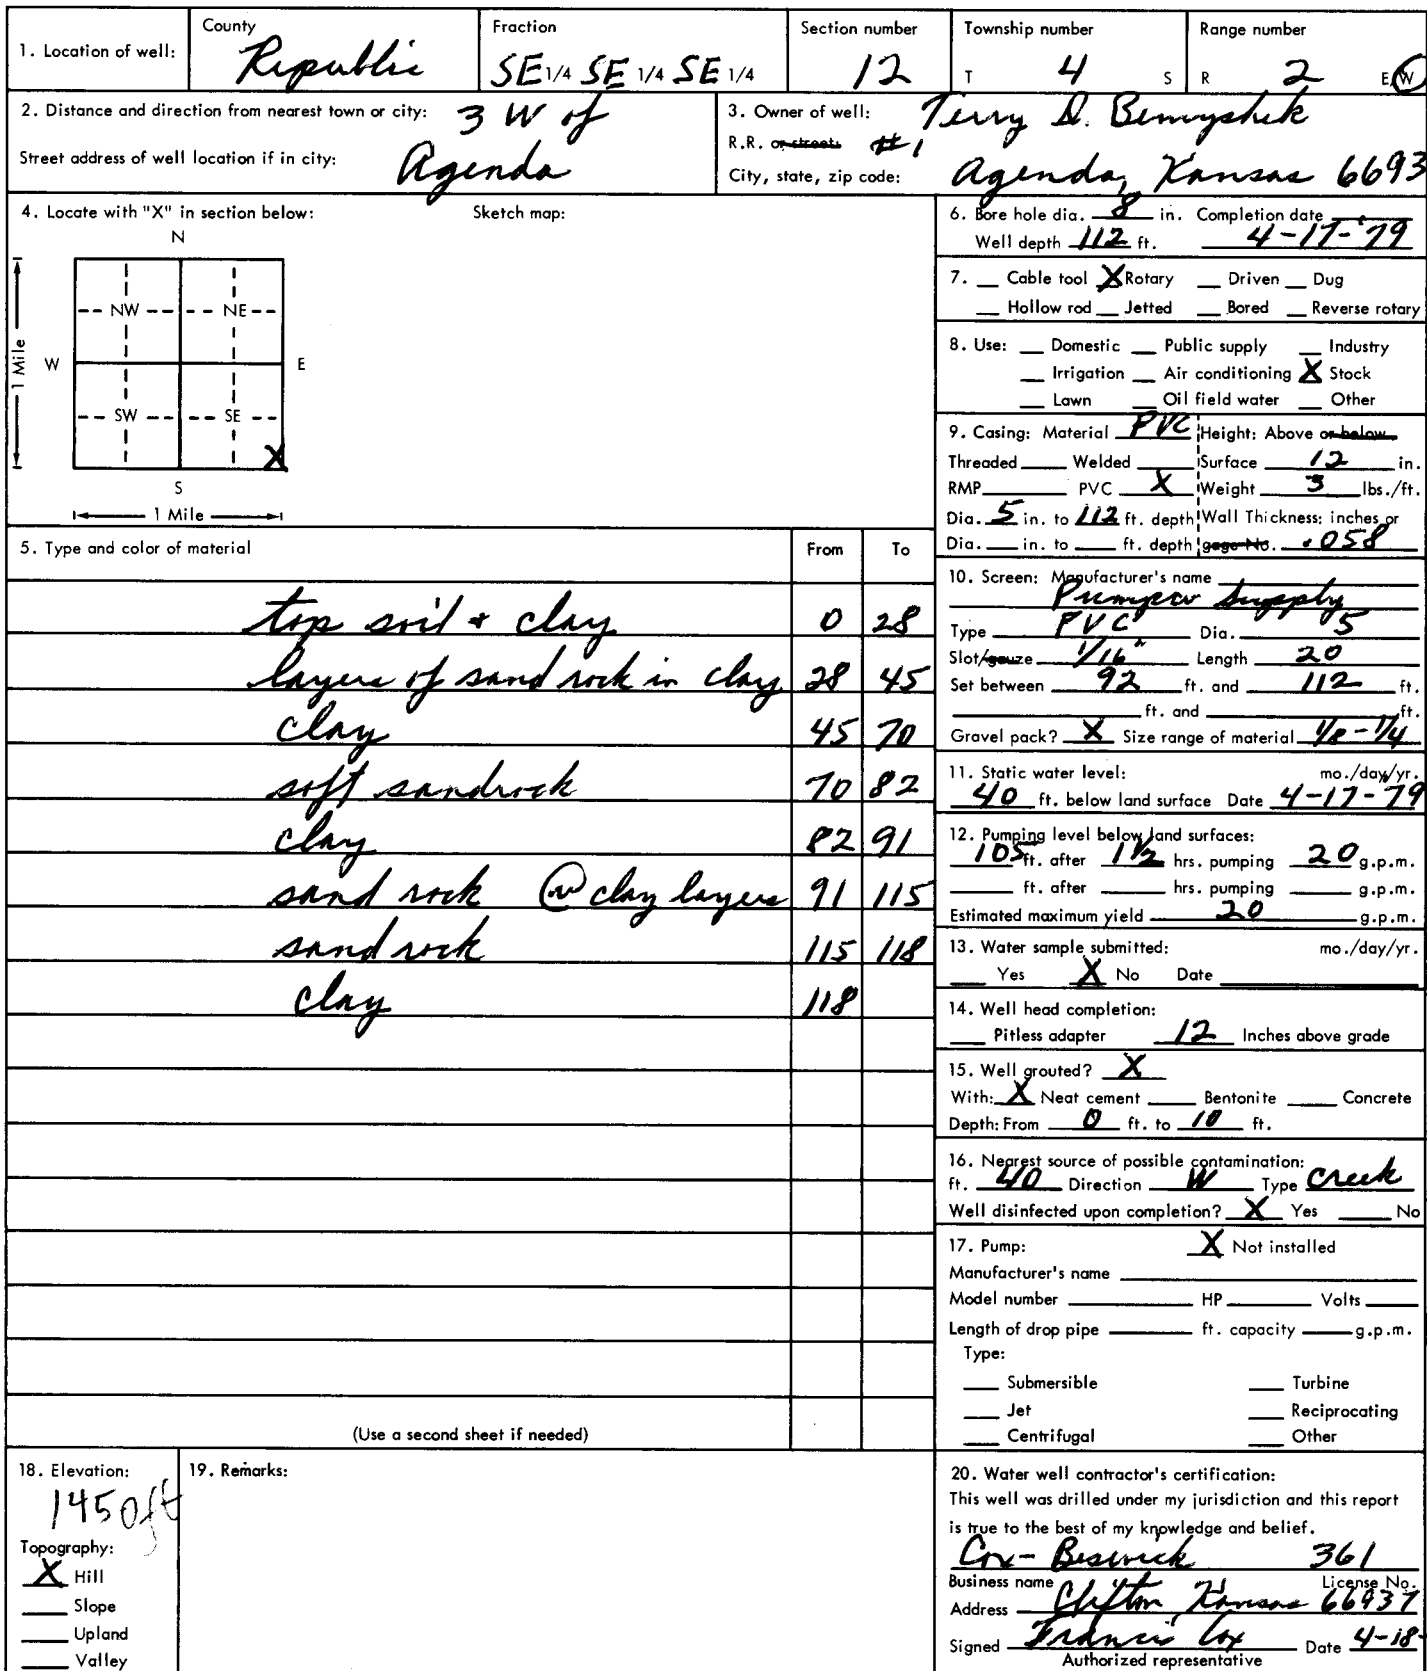 1. Location of well: County Republic Fraction SE 1/4 SE 1/4 SE 1/4 Section number 12 Township number T 4 S Range number R 2 E/W
2. Distance and direction from nearest town or city: 3 W of
Street address of well location if in city: Agenda
3. Owner of well: Terry D. Benyshek
R.R. or street: #1
City, state, zip code: Agenda, Kansas 6693
4. Locate with "X" in section below: Sketch map:
N
NW NE
W E
1 Mile
SW SE
X
S
1 Mile
5. Type and color of material From To
top soil + clay 0 28
layers of sand rock in clay 28 45
clay 45 70
soft sandrock 70 82
clay 82 91
sand rock @ clay layers 91 115
sand rock 115 118
clay 118
(Use a second sheet if needed)
6. Bore hole dia. 8 in. Completion date
Well depth 112 ft. 4-17-'79
7. Cable tool X Rotary Driven Dug
Hollow rod Jetted Bored Reverse rotary
8. Use: Domestic Public supply Industry
Irrigation Air conditioning X Stock
Lawn Oil field water Other
9. Casing: Material PVC Height: Above or below
Threaded Welded Surface 12 in.
RMP PVC X Weight 3 lbs./ft.
Dia. 5 in. to 112 ft. depth Wall Thickness: inches or
Dia. in. to ft. depth gage No. .058
10. Screen: Manufacturer's name
Supply
Type PVC Dia. 5
Slot/gauze 1/16" Length 20
Set between 92 ft. and 112 ft.
ft. and ft.
Gravel pack? X Size range of material 1/8-1/4
11. Static water level: mo./day/yr.
40 ft. below land surface Date 4-17-79
12. Pumping level below land surfaces:
105 ft. after 1 1/2 hrs. pumping 20 g.p.m.
ft. after hrs. pumping g.p.m.
Estimated maximum yield 20 g.p.m.
13. Water sample submitted: mo./day/yr.
Yes X No Date
14. Well head completion:
Pitless adapter 12 Inches above grade
15. Well grouted? X
With: X Neat cement Bentonite Concrete
Depth: From 0 ft. to 10 ft.
16. Nearest source of possible contamination:
ft. 40 Direction W Type Creek
Well disinfected upon completion? X Yes No
17. Pump: X Not installed
Manufacturer's name
Model number HP Volts
Length of drop pipe ft. capacity g.p.m.
Type:
Submersible Turbine
Jet Reciprocating
Centrifugal Other
18. Elevation:
1450ft
Topography:
X Hill
Slope
Upland
Valley
19. Remarks:
20. Water well contractor's certification:
This well was drilled under my jurisdiction and this report
is true to the best of my knowledge and belief.
Cox-Beswick 361
Business name License No.
Address Clifton Kansas 66937
Signed Francis Cox Date 4-18-
Authorized representative